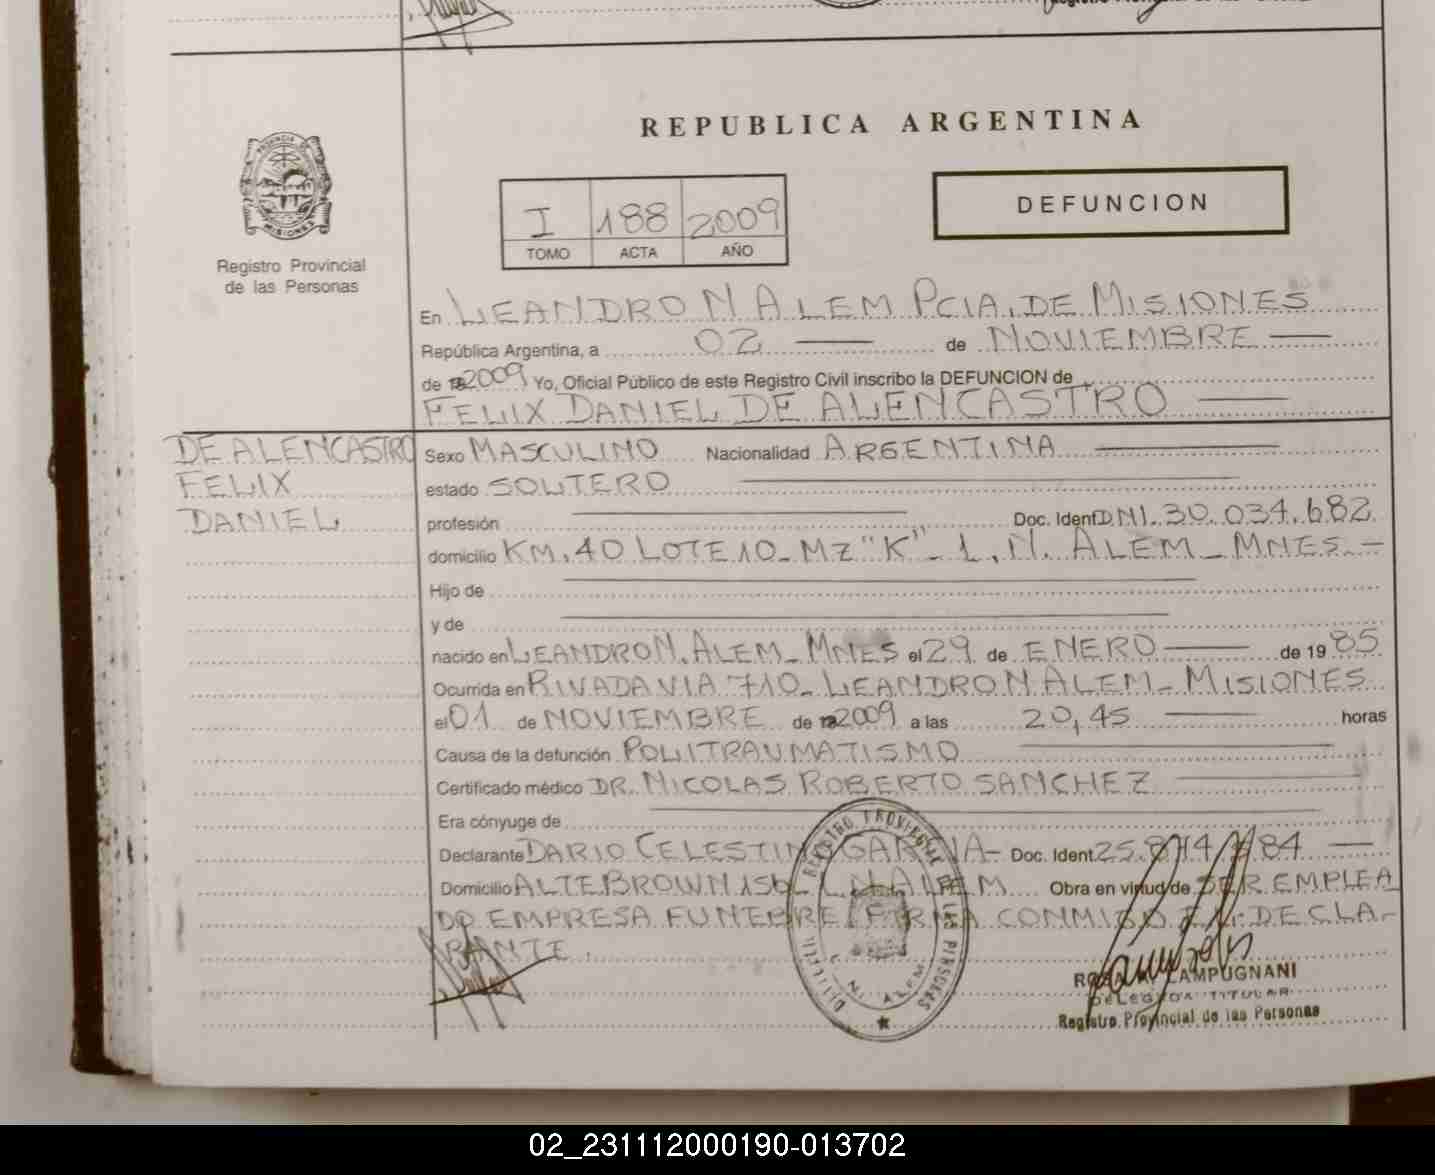 REPUBLICA ARGENTINA
PROVINCIA DE
MISIONES
Registro Provincial
de las Personas
I 188 2009
TOMO ACTA AÑO
DEFUNCION
En LEANDRO N ALEM PCIA. DE MISIONES
República Argentina, a 02 de NOVIEMBRE
de 2009 Yo, Oficial Público de este Registro Civil inscribo la DEFUNCION de
FELIX DANIEL DE ALENCASTRO
DE ALENCASTRO
FELIX
DANIEL
Sexo MASCULINO Nacionalidad ARGENTINA
estado SOLTERO
profesión Doc. Ident DNI. 30.034.682
domicilio KM. 40 LOTE 10_ MZ "K"_ L. N. ALEM_ MNES._
Hijo de
y de
nacido en LEANDRO N. ALEM_ MNES el 29 de ENERO de 1985
Ocurrida en RIVADAVIA 710_ LEANDRO N ALEM_ MISIONES
el 01 de NOVIEMBRE de 2009 a las 20,45 horas
Causa de la defunción POLITRAUMATISMO
Certificado médico DR. NICOLAS ROBERTO SANCHEZ
Era cónyuge de
Declarante DARIO CELESTINO Doc. Ident
Domicilio ALTE BROWN L N ALEM Obra en virtud de SER EMPLEA
DO EMPRESA FUNEBRE FIRMA CONMIGO EL DECLA-
RANTE.
REGISTRO PROVINCIAL DE LAS PERSONAS
L. N. ALEM
LAMPUGNANI
DELEGADA TITULAR
Registro Provincial de las Personas
02_231112000190-013702